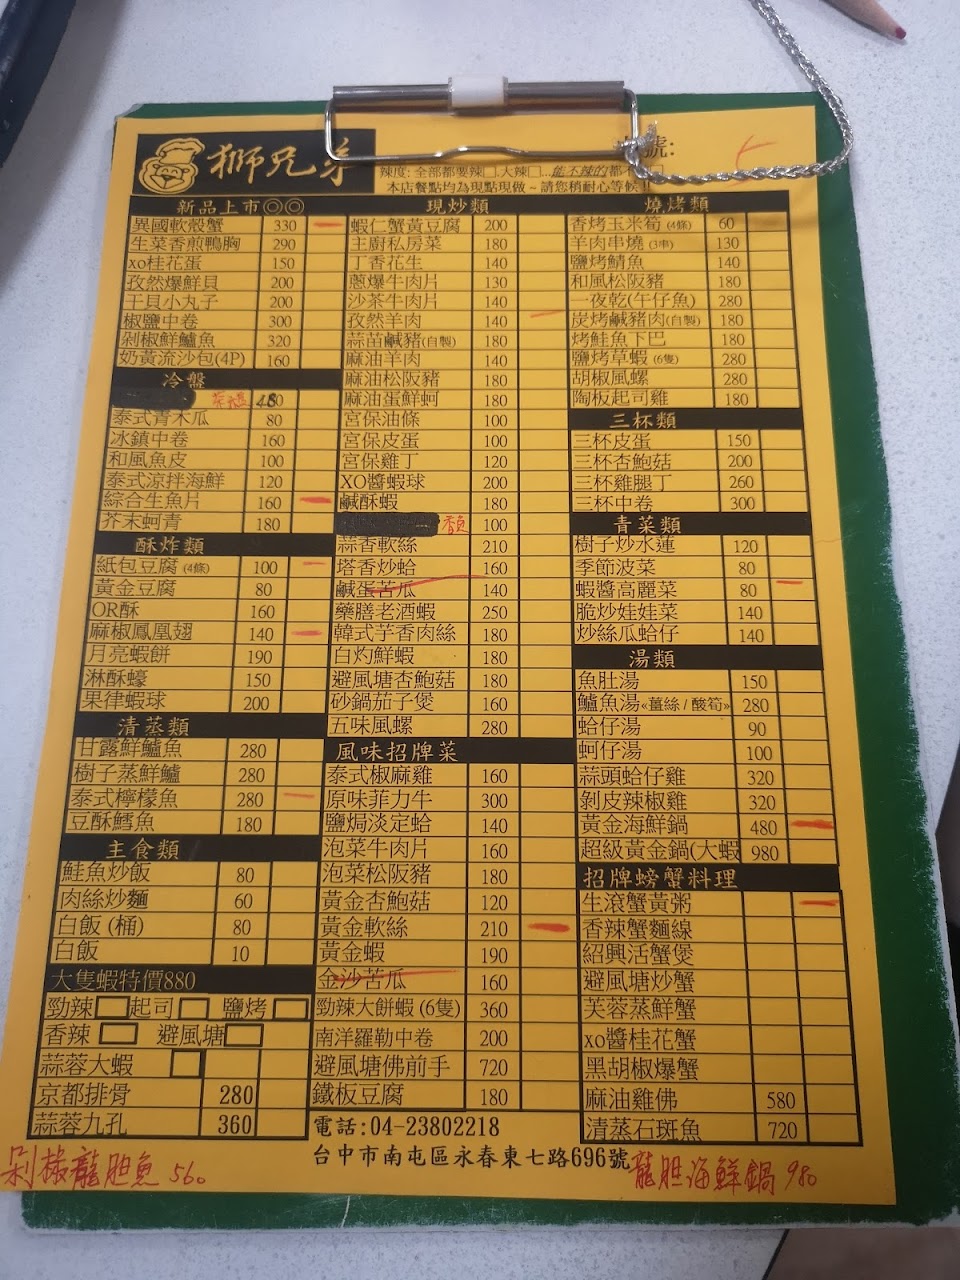 獅兄弟
號: 5
辣度: 全部都要辣□.大辣□...能不辣的都不□
本店餐點均為現點現做~請您稍耐心等候!!
新品上市◎◎
異國軟殼蟹 330
生菜香煎鴨胸 290
xo桂花蛋 150
孜然爆鮮貝 200
干貝小丸子 200
椒鹽中卷 300
剁椒鮮鱸魚 320
奶黃流沙包(4P) 160
冷盤
泰式青木瓜 80
冰鎮中卷 160
和風魚皮 100
泰式涼拌海鮮 120
綜合生魚片 160
芥末蚵青 180
酥炸類
紙包豆腐 (4條) 100
黃金豆腐 80
OR酥 160
麻椒鳳凰翅 140
月亮蝦餅 190
淋酥蠔 150
果律蝦球 200
清蒸類
甘露鮮鱸魚 280
樹子蒸鮮鱸 280
泰式檸檬魚 280
豆酥鱈魚 180
主食類
鮭魚炒飯 80
肉絲炒麵 60
白飯 (桶) 80
白飯 10
大隻蝦特價880
勁辣□起司□ 鹽烤□
香辣□ 避風塘□
蒜蓉大蝦□
京都排骨 280
蒜蓉九孔 360
剁椒龍胆魚 560
現炒類
蝦仁蟹黃豆腐 200
主廚私房菜 180
丁香花生 140
蔥爆牛肉片 130
沙茶牛肉片 140
孜然羊肉 140
蒜苗鹹豬(自製) 180
麻油羊肉 140
麻油松阪豬 180
麻油蛋鮮蚵 180
宮保油條 100
宮保皮蛋 100
宮保雞丁 120
XO醬蝦球 200
鹹酥蝦 180
100
蒜香軟絲 210
塔香炒蛤 160
鹹蛋苦瓜 140
藥膳老酒蝦 250
韓式芋香肉絲 180
白灼鮮蝦 180
避風塘杏鮑菇 180
砂鍋茄子煲 160
五味風螺 280
風味招牌菜
泰式椒麻雞 160
原味菲力牛 300
鹽焗淡定蛤 140
泡菜牛肉片 160
泡菜松阪豬 180
黃金杏鮑菇 120
黃金軟絲 210
黃金蝦 190
金沙苦瓜 160
勁辣大餅蝦 (6隻) 360
南洋羅勒中卷 200
避風塘佛前手 720
鐵板豆腐 180
電話:04-23802218
台中市南屯區永春東七路696號
燒烤類
香烤玉米筍 (4條) 60
羊肉串燒 (3串) 130
鹽烤鯖魚 140
和風松阪豬 180
一夜乾(午仔魚) 280
炭烤鹹豬肉(自製) 180
烤鮭魚下巴 180
鹽烤草蝦 (6隻) 280
胡椒風螺 280
陶板起司雞 180
三杯類
三杯皮蛋 150
三杯杏鮑菇 200
三杯雞腿丁 260
三杯中卷 300
青菜類
樹子炒水蓮 120
季節波菜 80
蝦醬高麗菜 80
脆炒娃娃菜 140
炒絲瓜蛤仔 140
湯類
魚肚湯 150
鱸魚湯«薑絲/酸筍» 280
蛤仔湯 90
蚵仔湯 100
蒜頭蛤仔雞 320
剝皮辣椒雞 320
黃金海鮮鍋 480
超級黃金鍋(大蝦 980
招牌螃蟹料理
生滾蟹黃粥
香辣蟹麵線
紹興活蟹煲
避風塘炒蟹
芙蓉蒸鮮蟹
xo醬桂花蟹
黑胡椒爆蟹
麻油雞佛 580
清蒸石斑魚 720
龍胆海鮮鍋 980